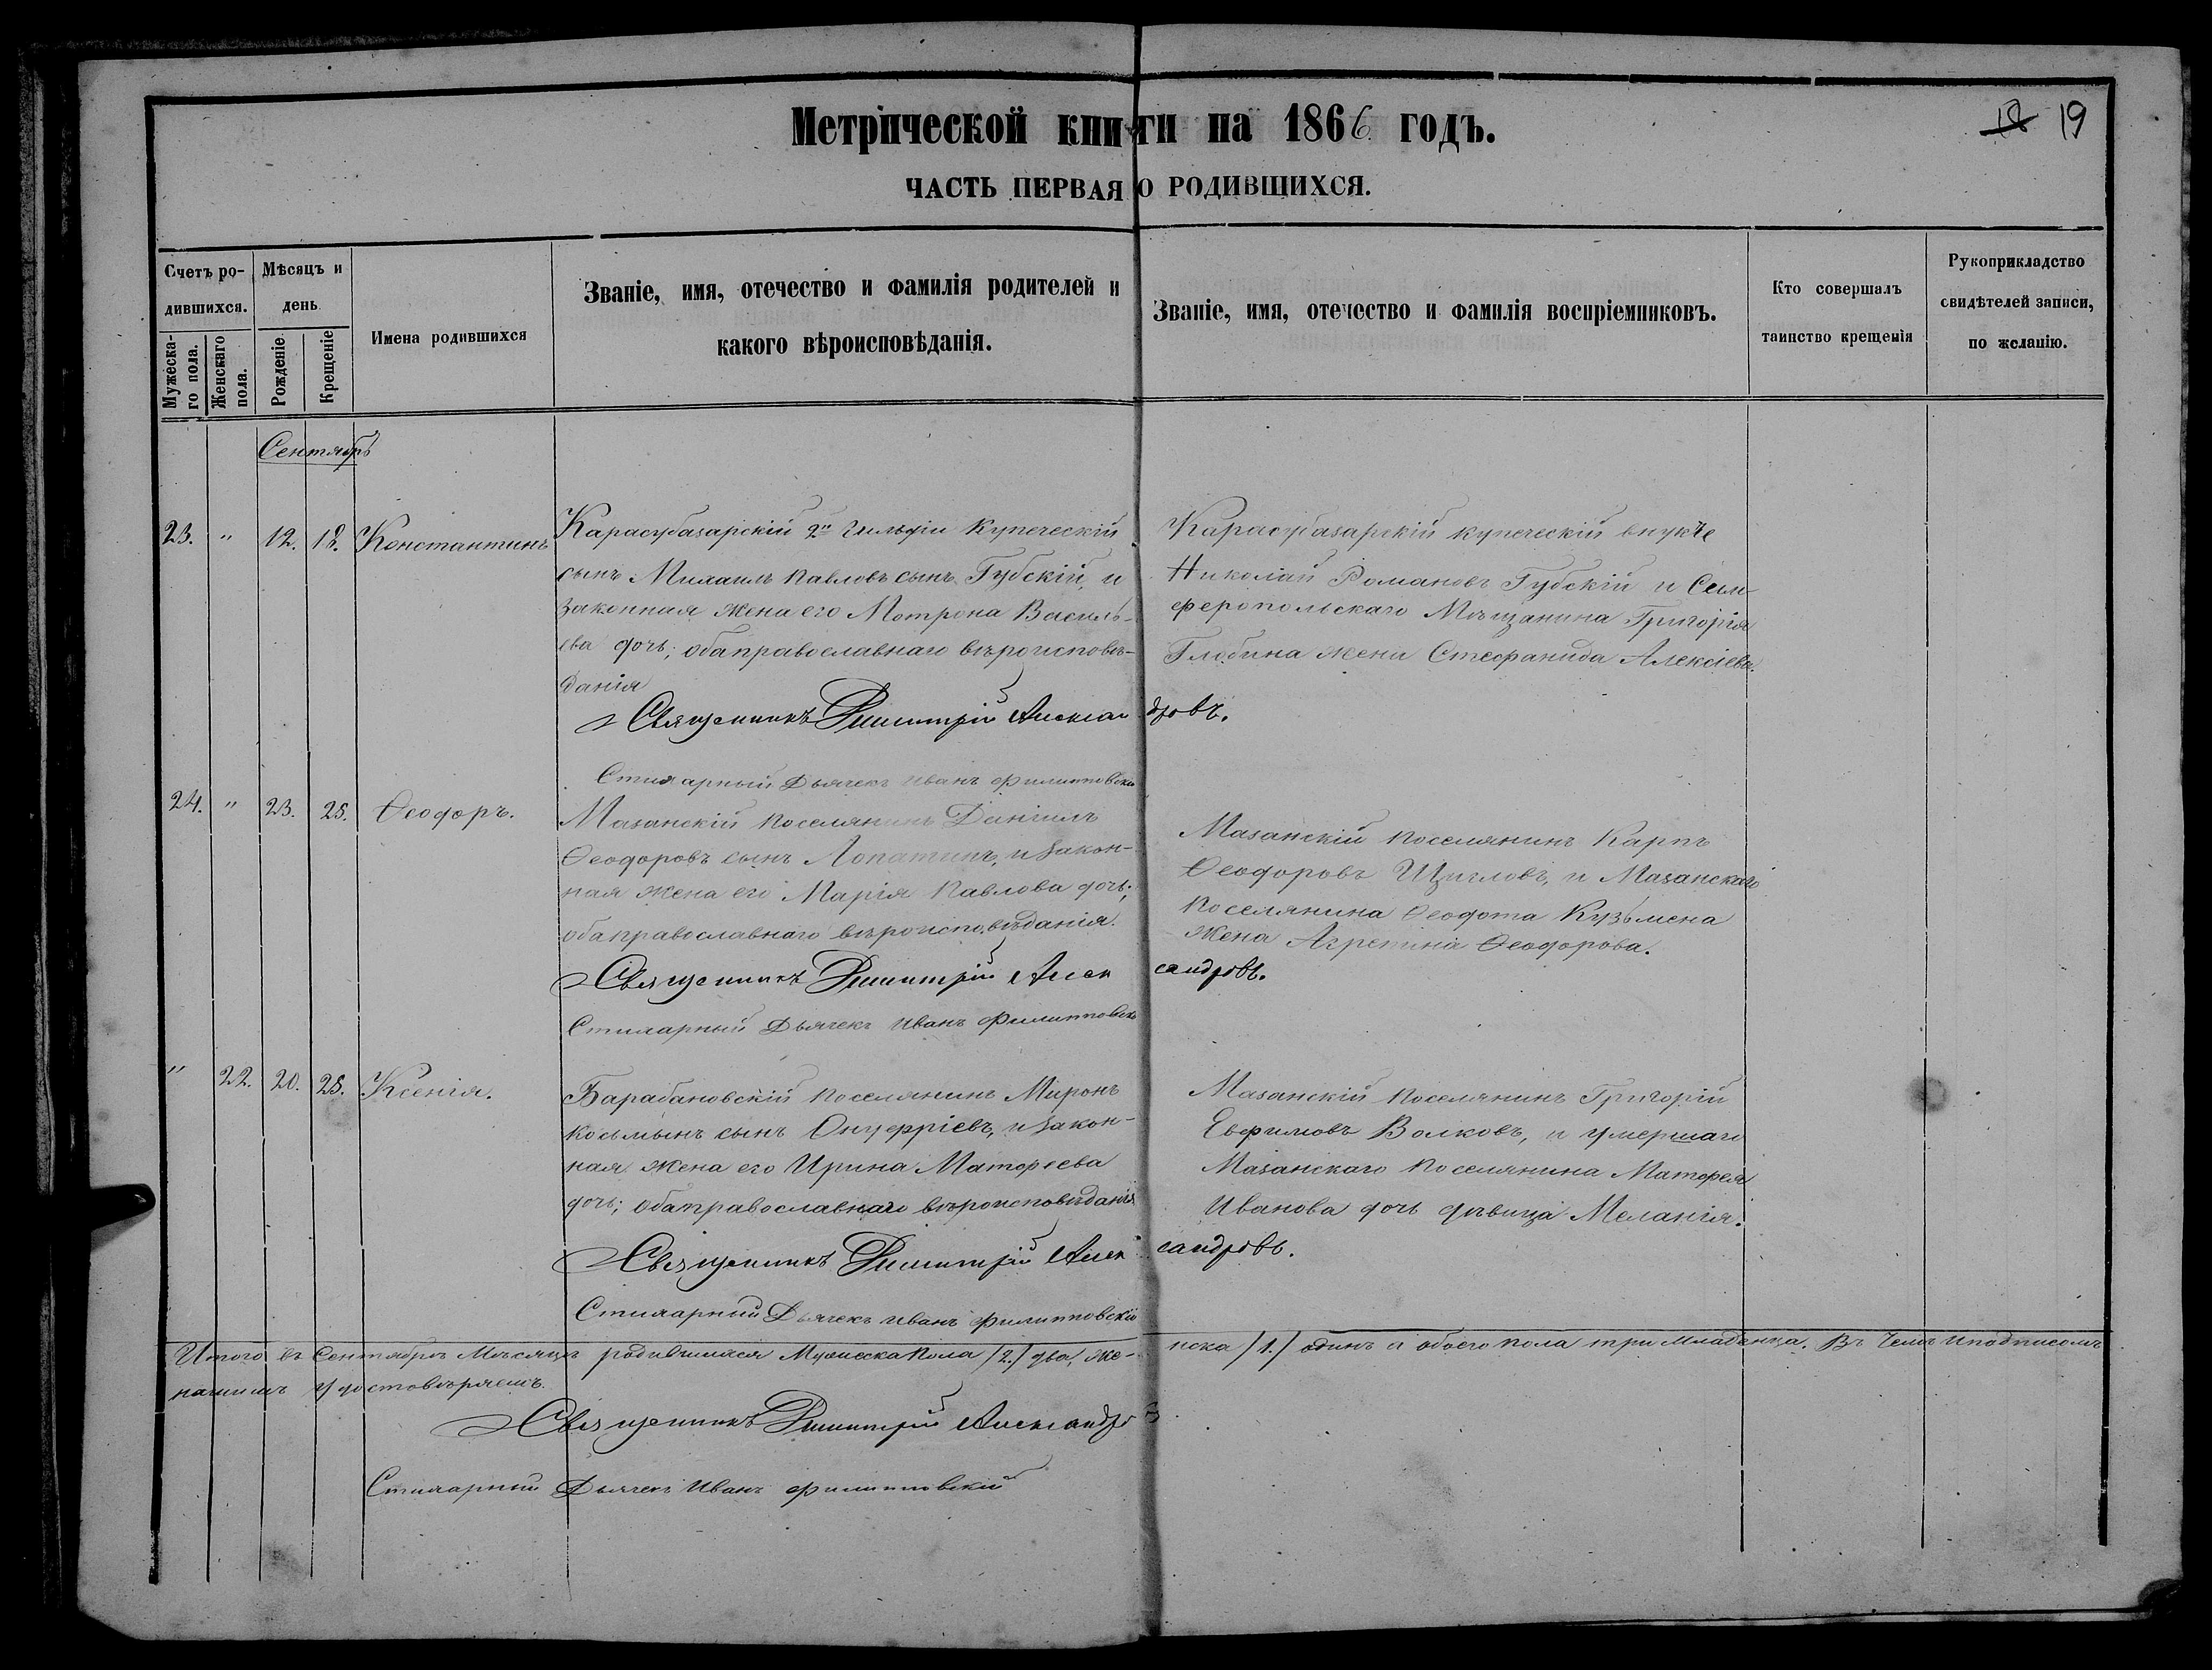 Метрической книги на 1866 годъ.
18 19
ЧАСТЬ ПЕРВАЯ О РОДИВШИХСЯ.
Счетъ ро-
дившихся.
Мужеска-
го пола.
Женскаго
пола.
Мѣсяцъ и
день
Рожденіе
Крещеніе
Имена родившихся
Званіе, имя, отечество и фамилія родителей и
какого вѣроисповѣданія.
Званіе, имя, отечество и фамилія воспріемниковъ.
Кто совершалъ
таинство крещенія
Рукоприкладство
свидѣтелей записи,
по желанію.
Сентябрь
23. " 12. 18. Константинъ
Карасубазарскій 2й Гильдіи Купеческій
сынъ Михаилъ Павловъ сынъ Губскій, и
Законная жена его Мотрона Василь-
ева дочь; оба православнаго вѣроисповѣ-
данія
Карасубазарскій купеческій внукъ
Николай Романовъ Губскій и Сим-
феропольскаго Мѣщанина Григорія
Глобина жена Стефанида Алексіева.
Священникъ Димитрій Александровъ.
Стихарный Дьячекъ Иванъ Филипповскій
24. " 23. 25. Ѳеодоръ.
Мазанскій поселянинъ Даніилъ
Ѳеодоровъ сынъ Лопатинъ, и закон-
ная жена его Марія Павлова дочь;
оба православнаго вѣроисповѣданія.
Мазанскій поселянинъ Карпъ
Ѳеодоровъ Щигловъ, и Мазанскаго
поселянина Ѳеодота Кузьмена
жена Агрепина Ѳеодорова.
Священникъ Димитрій Александровъ.
Стихарный Дьячекъ Иванъ Филипповскій
" 22. 20. 25. Ксенія.
Барабановскій поселянинъ Миронъ
Косьминъ сынъ Онуфріевъ, и закон-
ная жена его Ирина Матфеева
дочь; оба православнаго вѣроисповѣданія
Мазанскій поселянинъ Григорій
Евфимовъ Волковъ, и умершаго
Мазанскаго поселянина Матфея
Иванова дочь дѣвица Меланія.
Священникъ Димитрій Александровъ.
Стихарный Дьячекъ Иванъ Филипповскій
Итого въ Сентябрѣ Мѣсяцѣ родившихся Мужеска пола /2./ два, же- нска /1./ одинъ и обоего пола три младенца. Въ чемъ и подписомъ
нашимъ удостовѣряемъ.
Священникъ Димитрій Александровъ
Стихарный Дьячекъ Иванъ Филипповскій